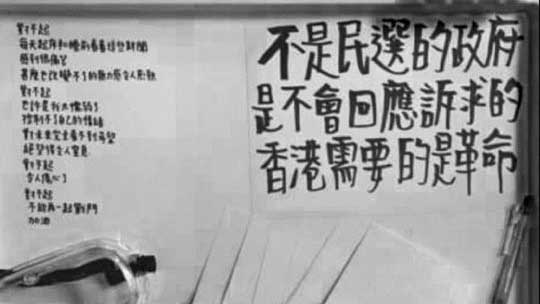 對不起
每天起床和睡前看着這些新聞
感到很傷心
甚麼也改變不了的無力感令人悲憤
對不起
也許是我太懦弱了
控制不了自己的情緒
對未來完全看不到希望
絕望得令人窒息
對不起
令人傷心了
對不起
不能再一起戰鬥
加油
不是民選的政府
是不會回應訴求的
香港需要的是革命